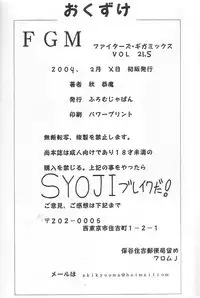 おくずけ
FGM
ファイターズ・ギガミックス
VOL 21.5
2009. 2月 X日 初版発行
著者 秋 恭魔
発行 ふろむじゃぱん
印刷 パワープリント
無断転写、複製を禁します。
尚本誌は成人向けであり18才未満の
購入を禁じる。上記の事をやったら
SYOJIブレイクだ!
ご意見、ご感想は下記まで
〒202-0005
西東京市住吉町1-2-1
保谷住吉郵便局留め
フロムJ
メールは akikyouma@hotmail.com